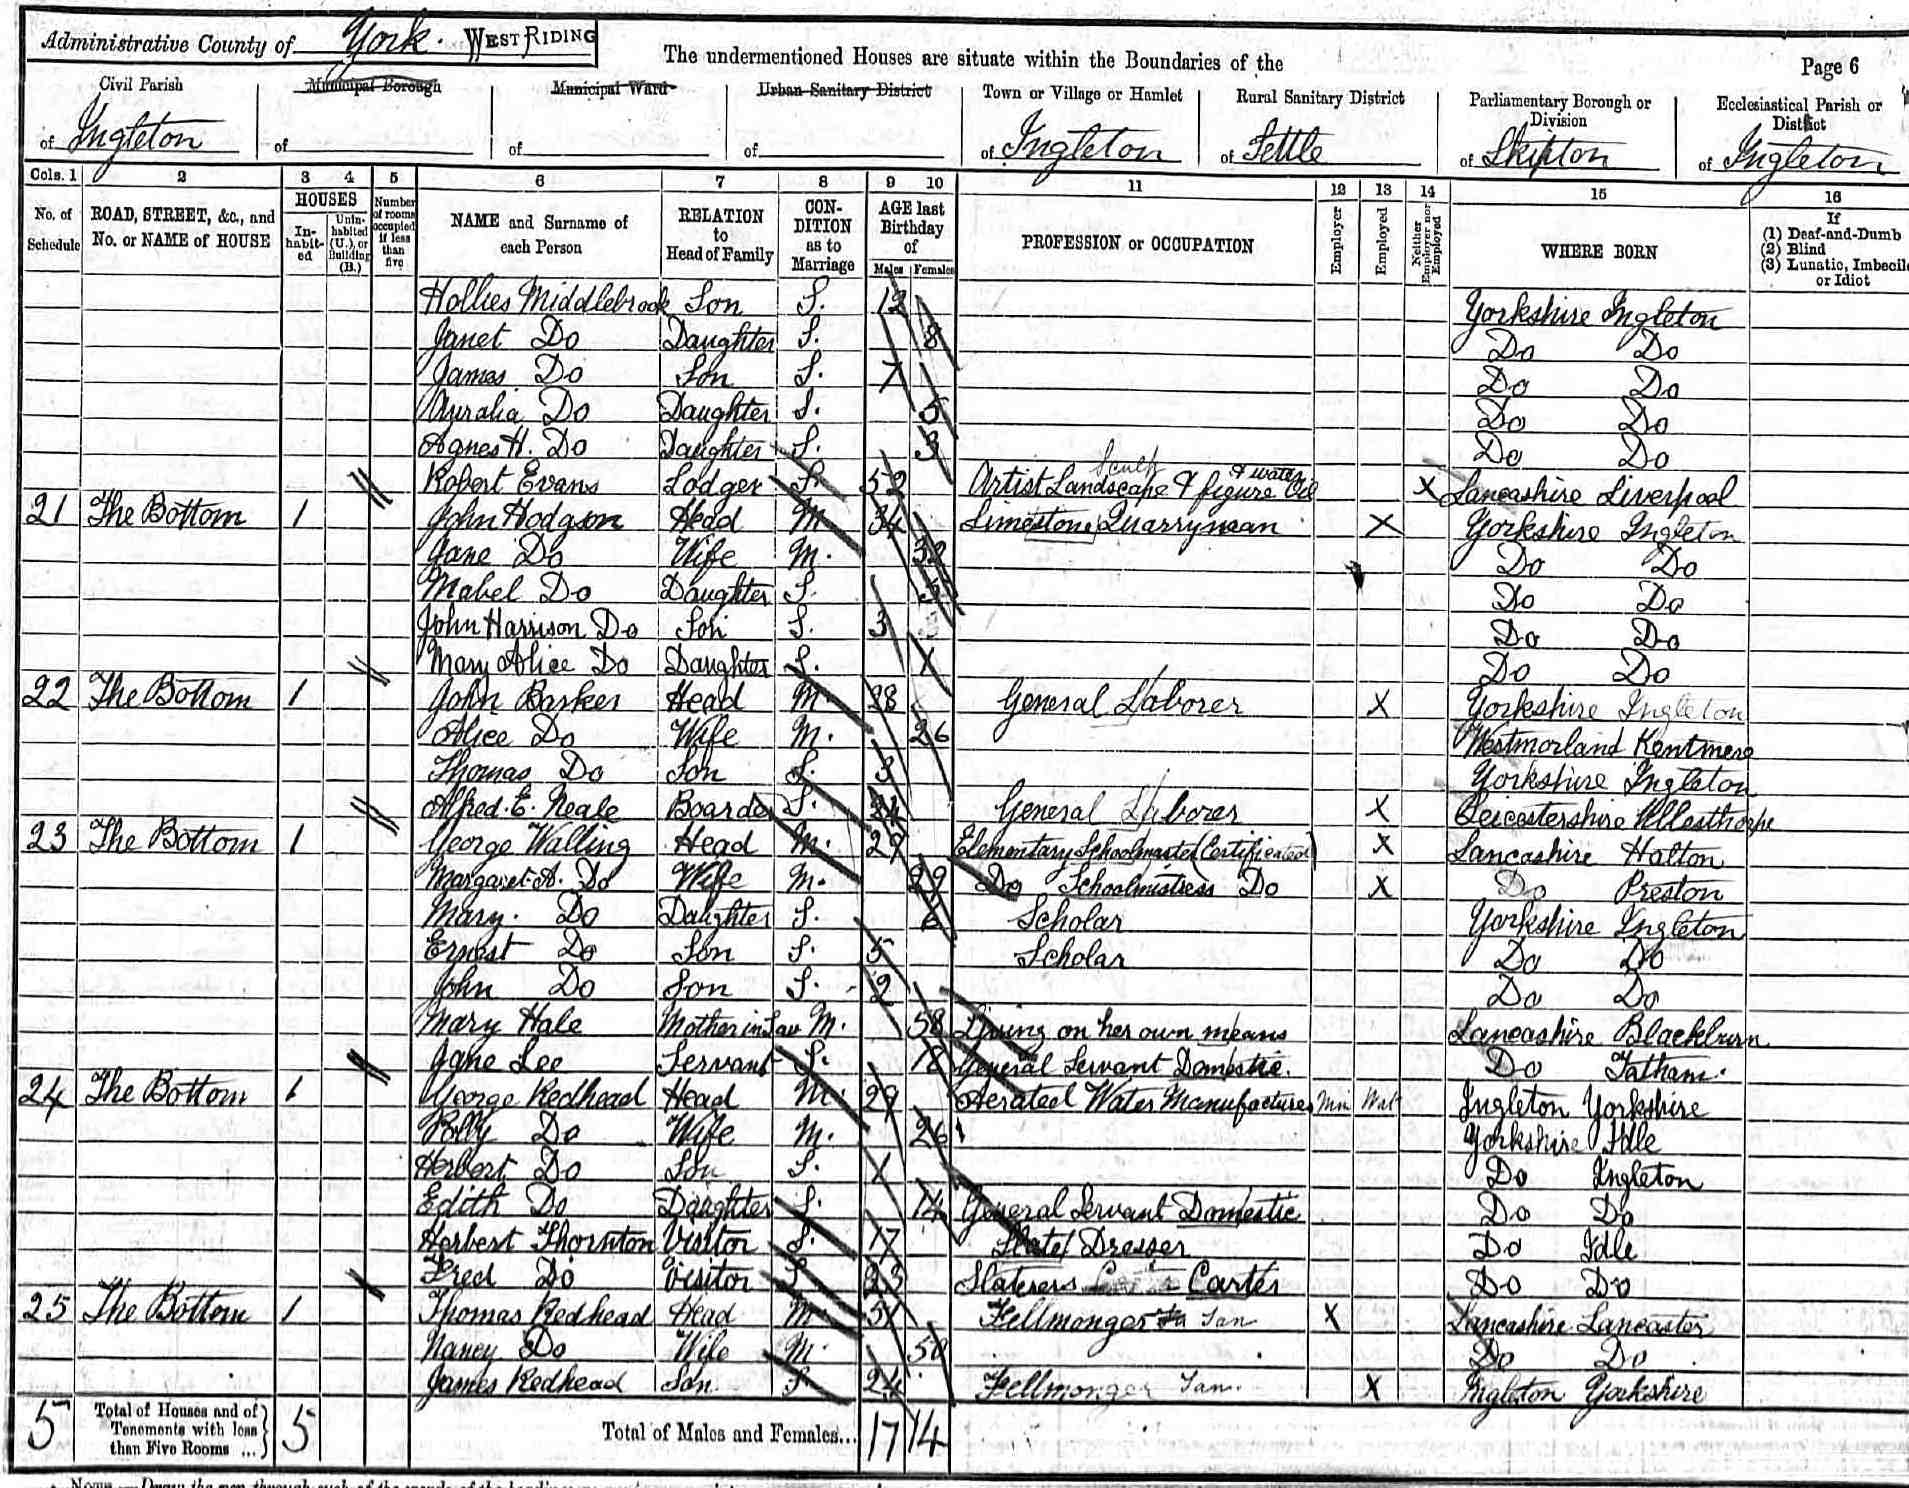 Administrative County of York. WEST RIDING
The undermentioned Houses are situate within the Boundaries of the
Page 6
Civil Parish of Ingleton
Municipal Borough of
Municipal Ward of
Urban Sanitary District of
Town or Village or Hamlet of Ingleton
Rural Sanitary District of Settle
Parliamentary Borough or Division of Skipton
Ecclesiastical Parish or District of Ingleton
Cols. 1 2 3 4 5 6 7 8 9 10 11 12 13 14 15 16
No. of Schedule
ROAD, STREET, &c., and No. or NAME of HOUSE
HOUSES
Inhabit-ed
Unin-habited (U.), or Building (B.)
Number of rooms occupied if less than five
NAME and Surname of each Person
RELATION to Head of Family
CON-DITION as to Marriage
AGE last Birthday of
Males Females
PROFESSION or OCCUPATION
Employer
Employed
Neither Employer nor Employed
WHERE BORN
If (1) Deaf-and-Dumb (2) Blind (3) Lunatic, Imbecile or Idiot
Hollies Middlebrook Son S. 12 Yorkshire Ingleton
Janet Do Daughter S. 8 Do Do
James Do Son S. 7 Do Do
Auralia Do Daughter S. 5 Do Do
Agnes H. Do Daughter S. 3 Do Do
Robert Evans Lodger S. 52 Artist Landscape & figure Oil & water Sculp X Lancashire Liverpool
21 The Bottom 1 John Hodgson Head M 34 Limestone Quarryman X Yorkshire Ingleton
Jane Do Wife M. 32 Do Do
Mabel Do Daughter S. 5 Do Do
John Harrison Do Son S. 3 Do Do
Mary Alice Do Daughter S. 1 Do Do
22 The Bottom 1 John Barker Head M. 28 General Laborer X Yorkshire Ingleton
Alice Do Wife M. 26 Westmorland Kentmere
Thomas Do Son S. 3 Yorkshire Ingleton
Alfred. E. Neale Boarder S. 24 General Laborer X Leicestershire Ullesthorpe
23 The Bottom 1 George Walling Head M. 29 Elementary Schoolmaster (Certificated) X Lancashire Halton
Margaret. A. Do Wife M. 29 Do Schoolmistress Do X Do Preston
Mary. Do Daughter S. 6 Scholar Yorkshire Ingleton
Ernest Do Son S. 5 Scholar Do Do
John Do Son S. 2 Do Do
Mary Hale Mother in Law M. 58 Living on her own means Lancashire Blackburn
Jane Lee Servant S. 18 General Servant Domestic. Do Tatham.
24 The Bottom 1 George Redhead Head M. 29 Aerated Water Manufacturer Min Wat Ingleton Yorkshire
Polly Do Wife M. 26 Yorkshire Idle
Herbert Do Son S. 1 Do Ingleton
Edith Do Daughter S. 14 General Servant Domestic Do Do
Herbert Thornton Visitor S. 17 Slate Dresser Do Idle
Fred Do Visitor S 23 Slaterers Carter Do Do
25 The Bottom 1 Thomas Redhead Head M. 51 Fellmonger Tan X Lancashire Lancaster
Nancy Do Wife M. 50 Do Do
James Redhead Son S. 24 Fellmonger Tan X Ingleton Yorkshire
5 Total of Houses and of Tenements with less than Five Rooms ... 5 Total of Males and Females... 17 14